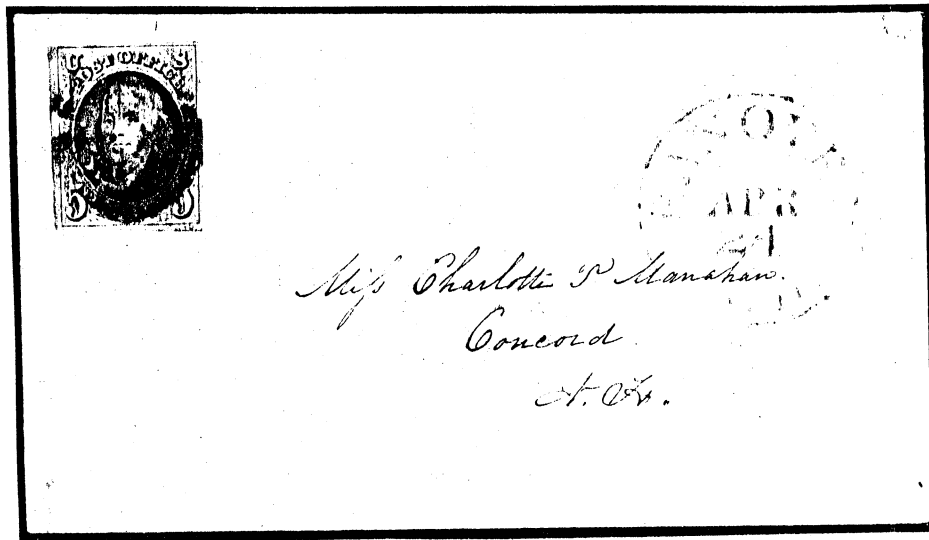 U S
POST OFFICE
5 5
APR
Miſs Charlotte P Manahan.
Concord
N. H.